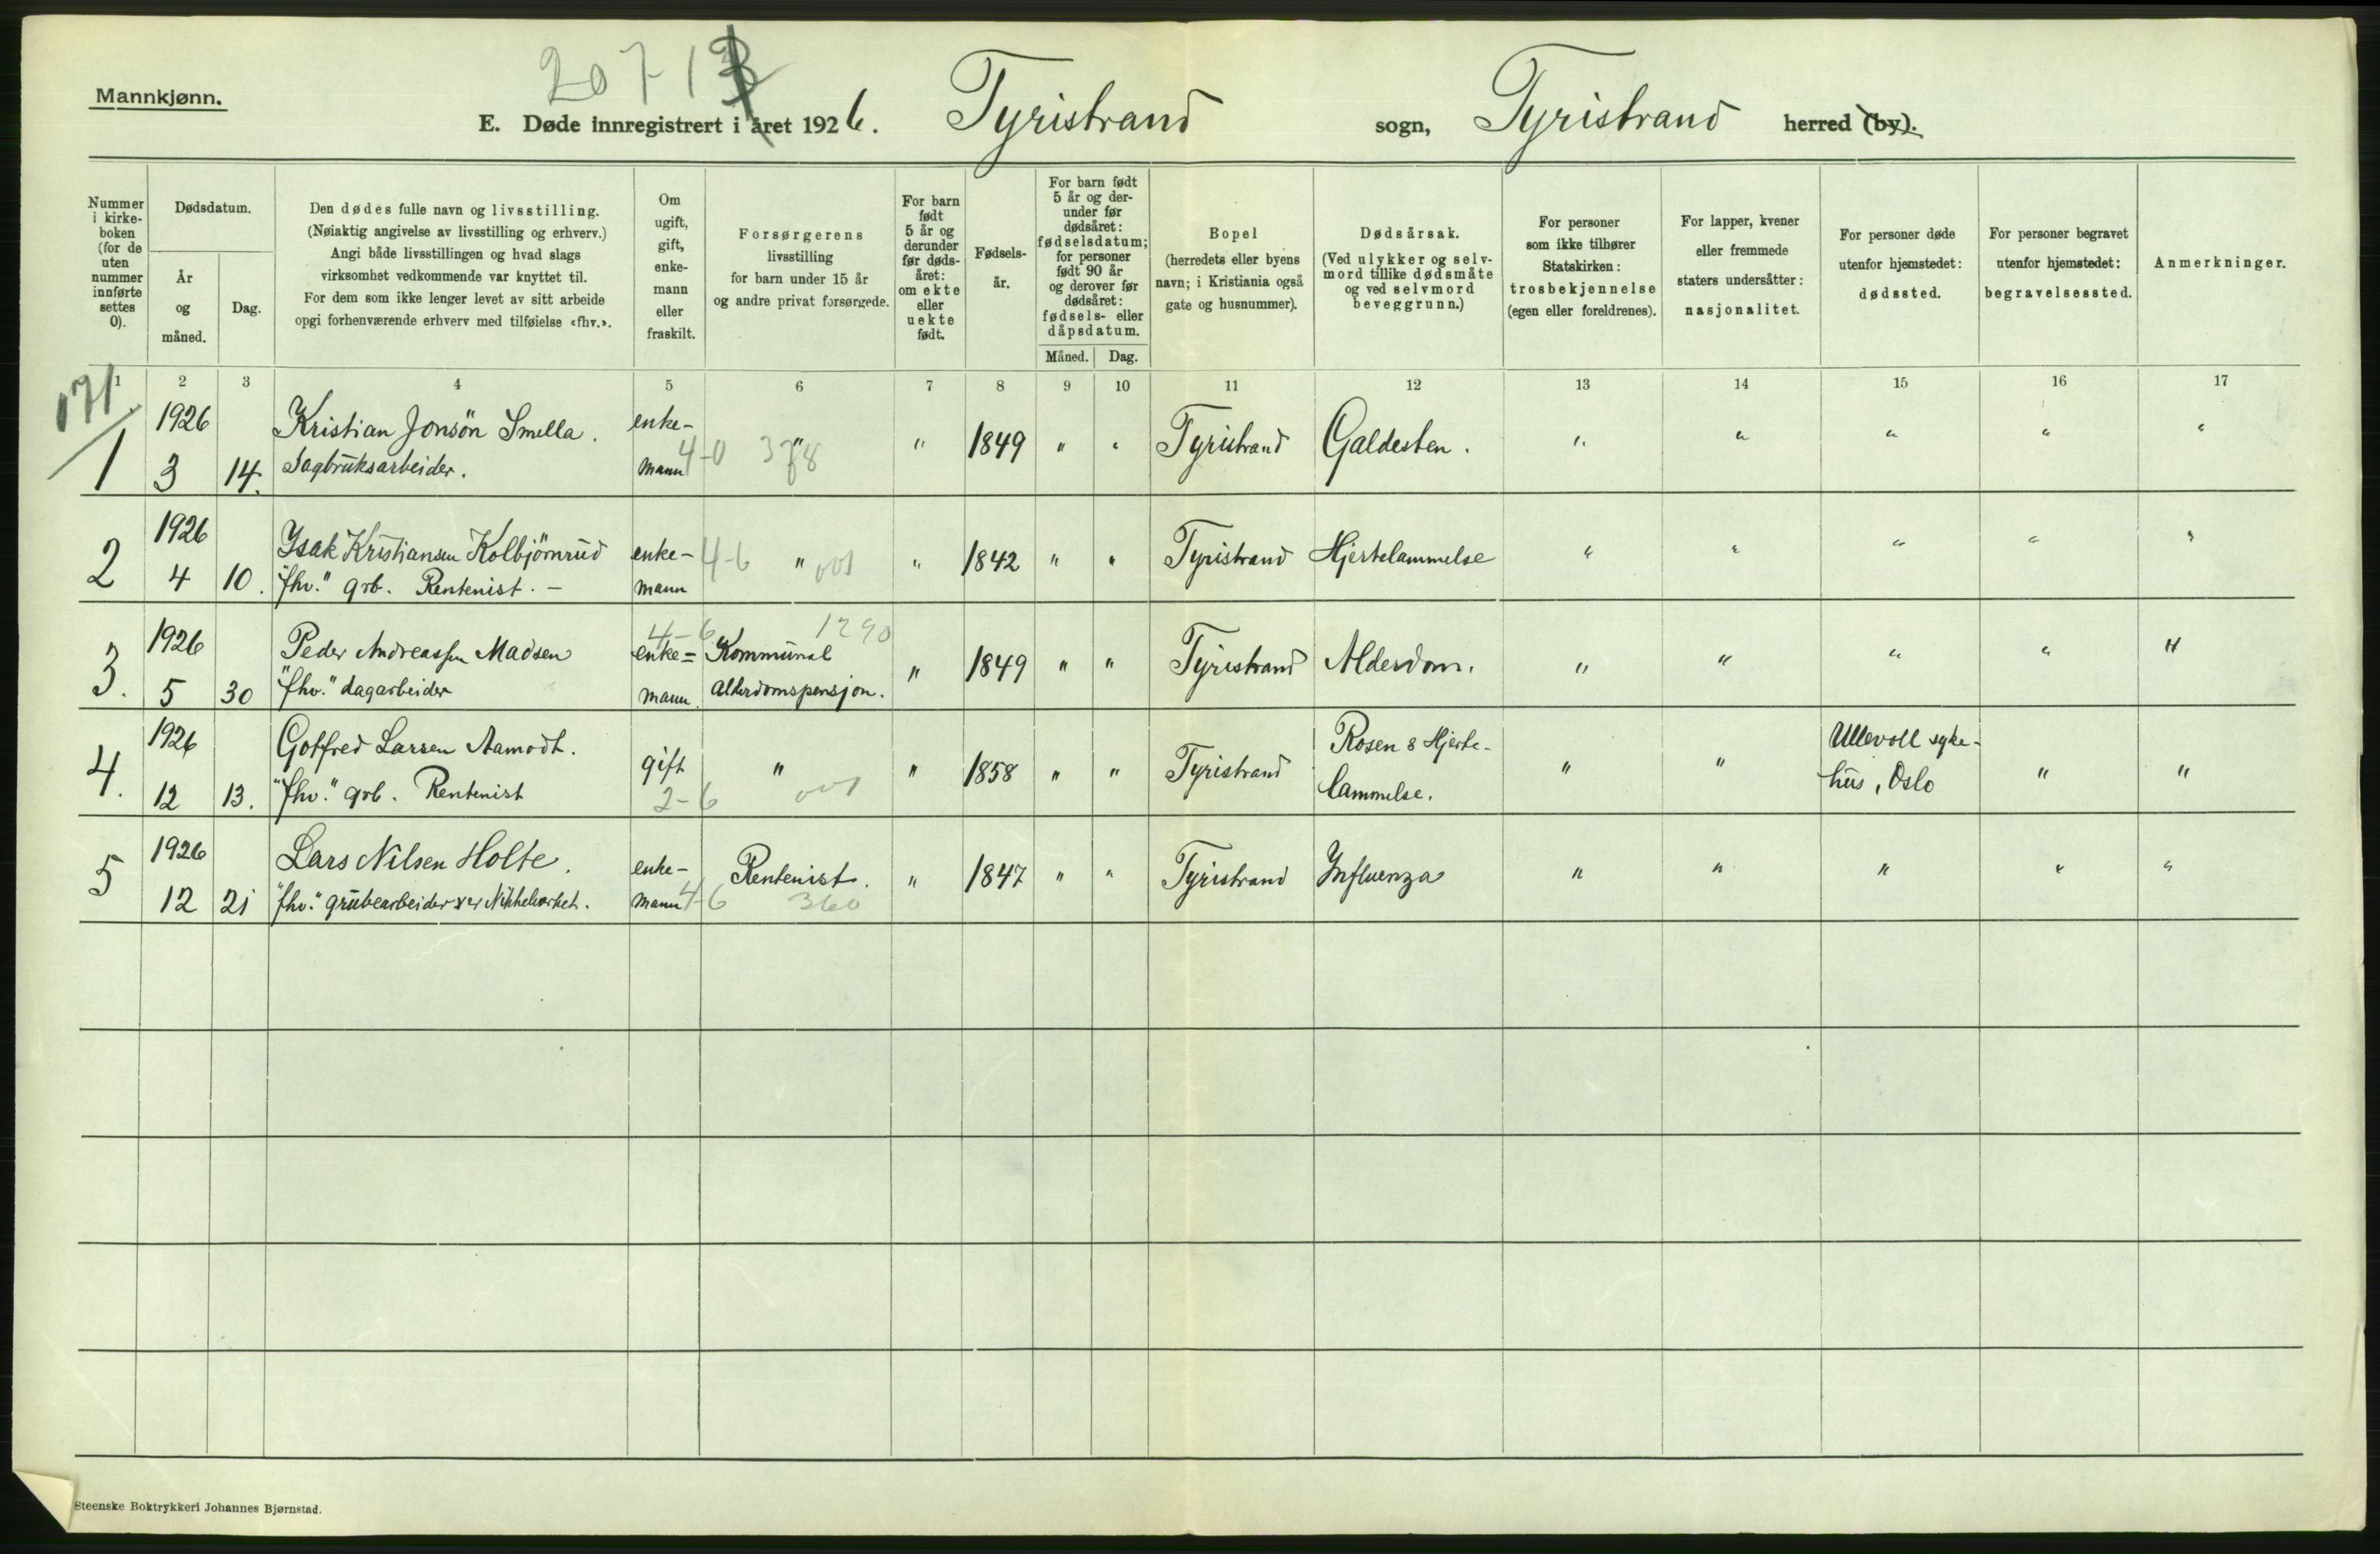 207-1
Mannkjønn.
E. Døde innregistrert i året 1926. Tyristrand sogn, Tyristrand herred (by).
Nummer i kirke-boken (for de uten nummer innførte settes 0).
Dødsdatum.
År og måned.
Dag.
Den dødes fulle navn og livsstilling.
(Nøiaktig angivelse av livsstilling og erhverv.)
Angi både livsstillingen og hvad slags
virksomhet vedkommende var knyttet til.
For dem som ikke lenger levet av sitt arbeide
opgi forhenværende erhverv med tilføielse «fhv.».
Om ugift, gift, enke-mann eller fraskilt.
Forsørgerens
livsstilling
for barn under 15 år
og andre privat forsørgede.
For barn født 5 år og derunder før døds-året: om ekte eller uekte født.
Fødsels-år.
For barn født 5 år og der-under før dødsåret: fødselsdatum; for personer født 90 år og derover før dødsåret: fødsels- eller dåpsdatum.
Måned. Dag.
Bopel
(herredets eller byens
navn; i Kristiania også
gate og husnummer).
Dødsårsak.
(Ved ulykker og selv-
mord tillike dødsmåte
og ved selvmord
beveggrunn.)
For personer
som ikke tilhører
Statskirken:
trosbekjennelse
(egen eller foreldrenes).
For lapper, kvener
eller fremmede
staters undersåtter:
nasjonalitet.
For personer døde
utenfor hjemstedet:
dødssted.
For personer begravet
utenfor hjemstedet:
begravelsessted.
Anmerkninger.
1 2 3 4 5 6 7 8 9 10 11 12 13 14 15 16 17
171
1926 Kristian Jonsön Smella. enke- " " 1849 " " Tyristrand Galdesten. " " " " "
1 3 14. Sagbruksarbeider. mann 4-0 378
1926 Ysak Kristiansen Kolbjörnrud enke- 4-6 " 001 " 1842 " " Tyristrand Hjertelammelse " " " " "
2 4 10. "fhv." grb. Rentenist. - mann
4-6 1290
1926 Peder Andreassen Madsen enke= Kommunal " 1849 " " Tyristrand Alderdom. " " " " "
3. 5 30 "fhv." dagarbeider mann. Alderdomspensjon.
1926 Gotfred Larsen Aamodt. gift " " 1858 " " Tyristrand Rosen & Hjerte- " " Ullevoll syke- " "
4. 12 13. "fhv." grb. Rentenist 2-6 001 lammelse. hus, Oslo
1926 Lars Nilsen Holte. enke- Rentenist. " 1847 " " Tyristrand Ynfluenza " " " " "
5 12 21 "fhv." grubearbeider ver Nikkelverket. mann 4-6 360
Steenske Boktrykkeri Johannes Bjørnstad.